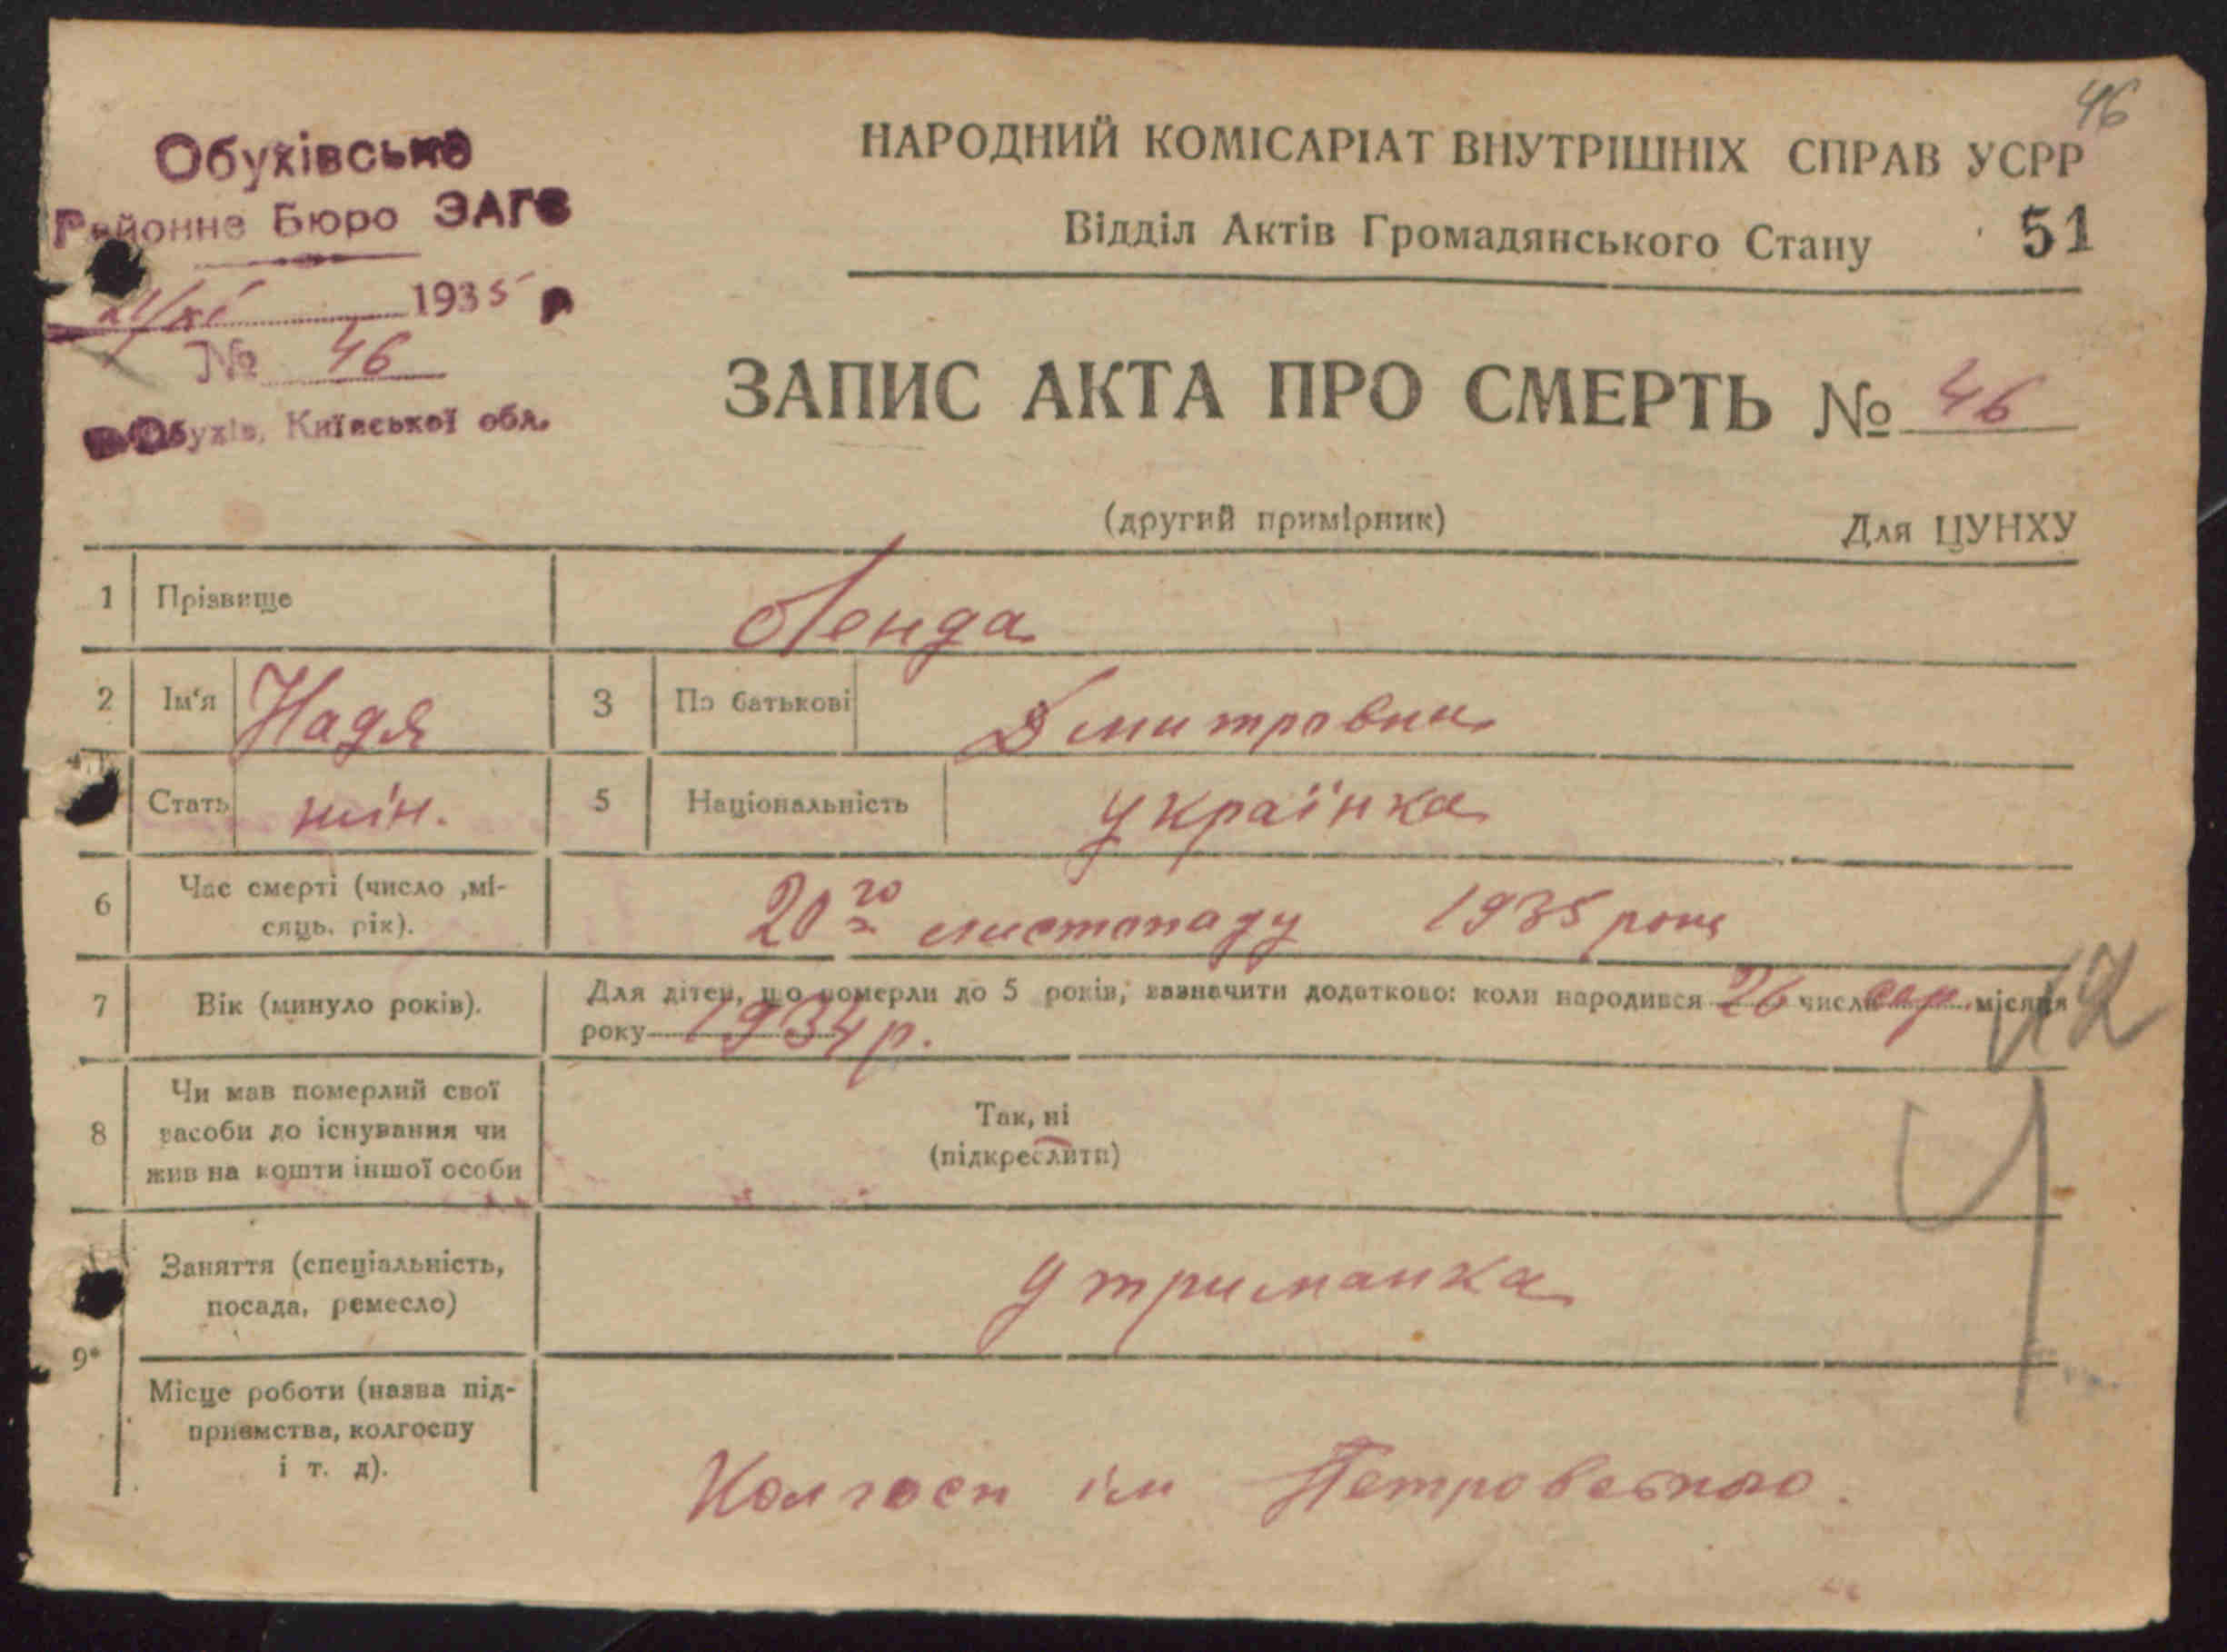 46
Обухівське
Районне Бюро ЗАГС
21/XI 1935 р
№ 46
Обухів, Київської обл.
НАРОДНИЙ КОМІСАРІАТ ВНУТРІШНІХ СПРАВ УСРР
Відділ Актів Громадянського Стану 51
ЗАПИС АКТА ПРО СМЕРТЬ № 46
(другий примірник) Для ЦУНХУ
1 Прізвище Ленда
2 Ім'я Надя 3 По батькові Дмитровна
Стать жін. 5 Національність українка
6 Час смерті (число ,мі-
сяць, рік).
20го листопаду 1935 року
7 Вік (минуло років).
Для дітей, що померли до 5 років, зазначити додатково: коли народився 26 числа сер. місяця
року 1934 р.
8 Чи мав померлий свої
засоби до існування чи
жив на кошти іншої особи
Так, ні
(підкреслити)
9*
Заняття (спеціальність,
посада, ремесло)
утриманка
Місце роботи (назва під-
приємства, колгоспу
і т. д).
Колгосп ім Петровського.